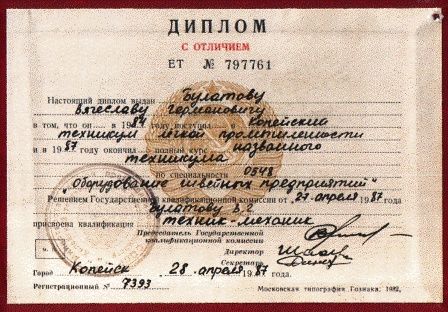 ДИПЛОМ
С ОТЛИЧИЕМ
ЕТ № 797761
Настоящий диплом выдан Булатову
Вячеславу Германовичу
в том, что он в 1984 году поступил Копейский
техникум лёгкой промышленности
и в 1987 году окончил полный курс названного
техникума
по специальности 0548
"Оборудование швейных предприятий"
Решением Государственной квалификационной комиссии от 27 апреля 1987 года
Булатову В.Г.
присвоена квалификация техник-механик
Председатель Государственной
квалификационной комиссии
Директор
Секретарь
Город Копейск 28 апреля 1987 года.
Регистрационный № 7393
Московская типография Гознака. 1982.